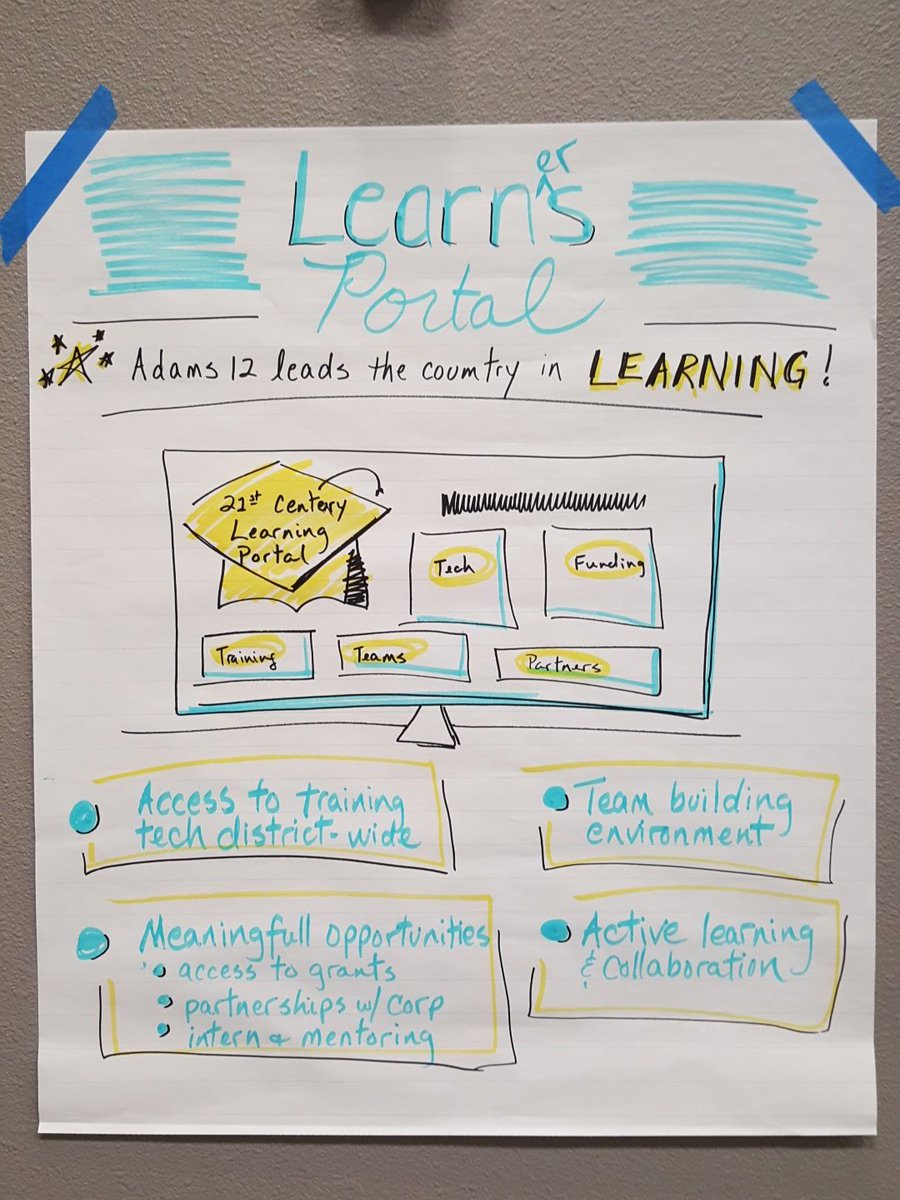 Learn^er's
Portal
Adams 12 leads the country in LEARNING!
21st Century
Learning
Portal
Tech
Funding
Training
Teams
Partners
Access to training
tech district-wide
Team building
environment
Meaningfull opportunities
access to grants
partnerships w/ Corp
intern & mentoring
Active learning
& Collaboration